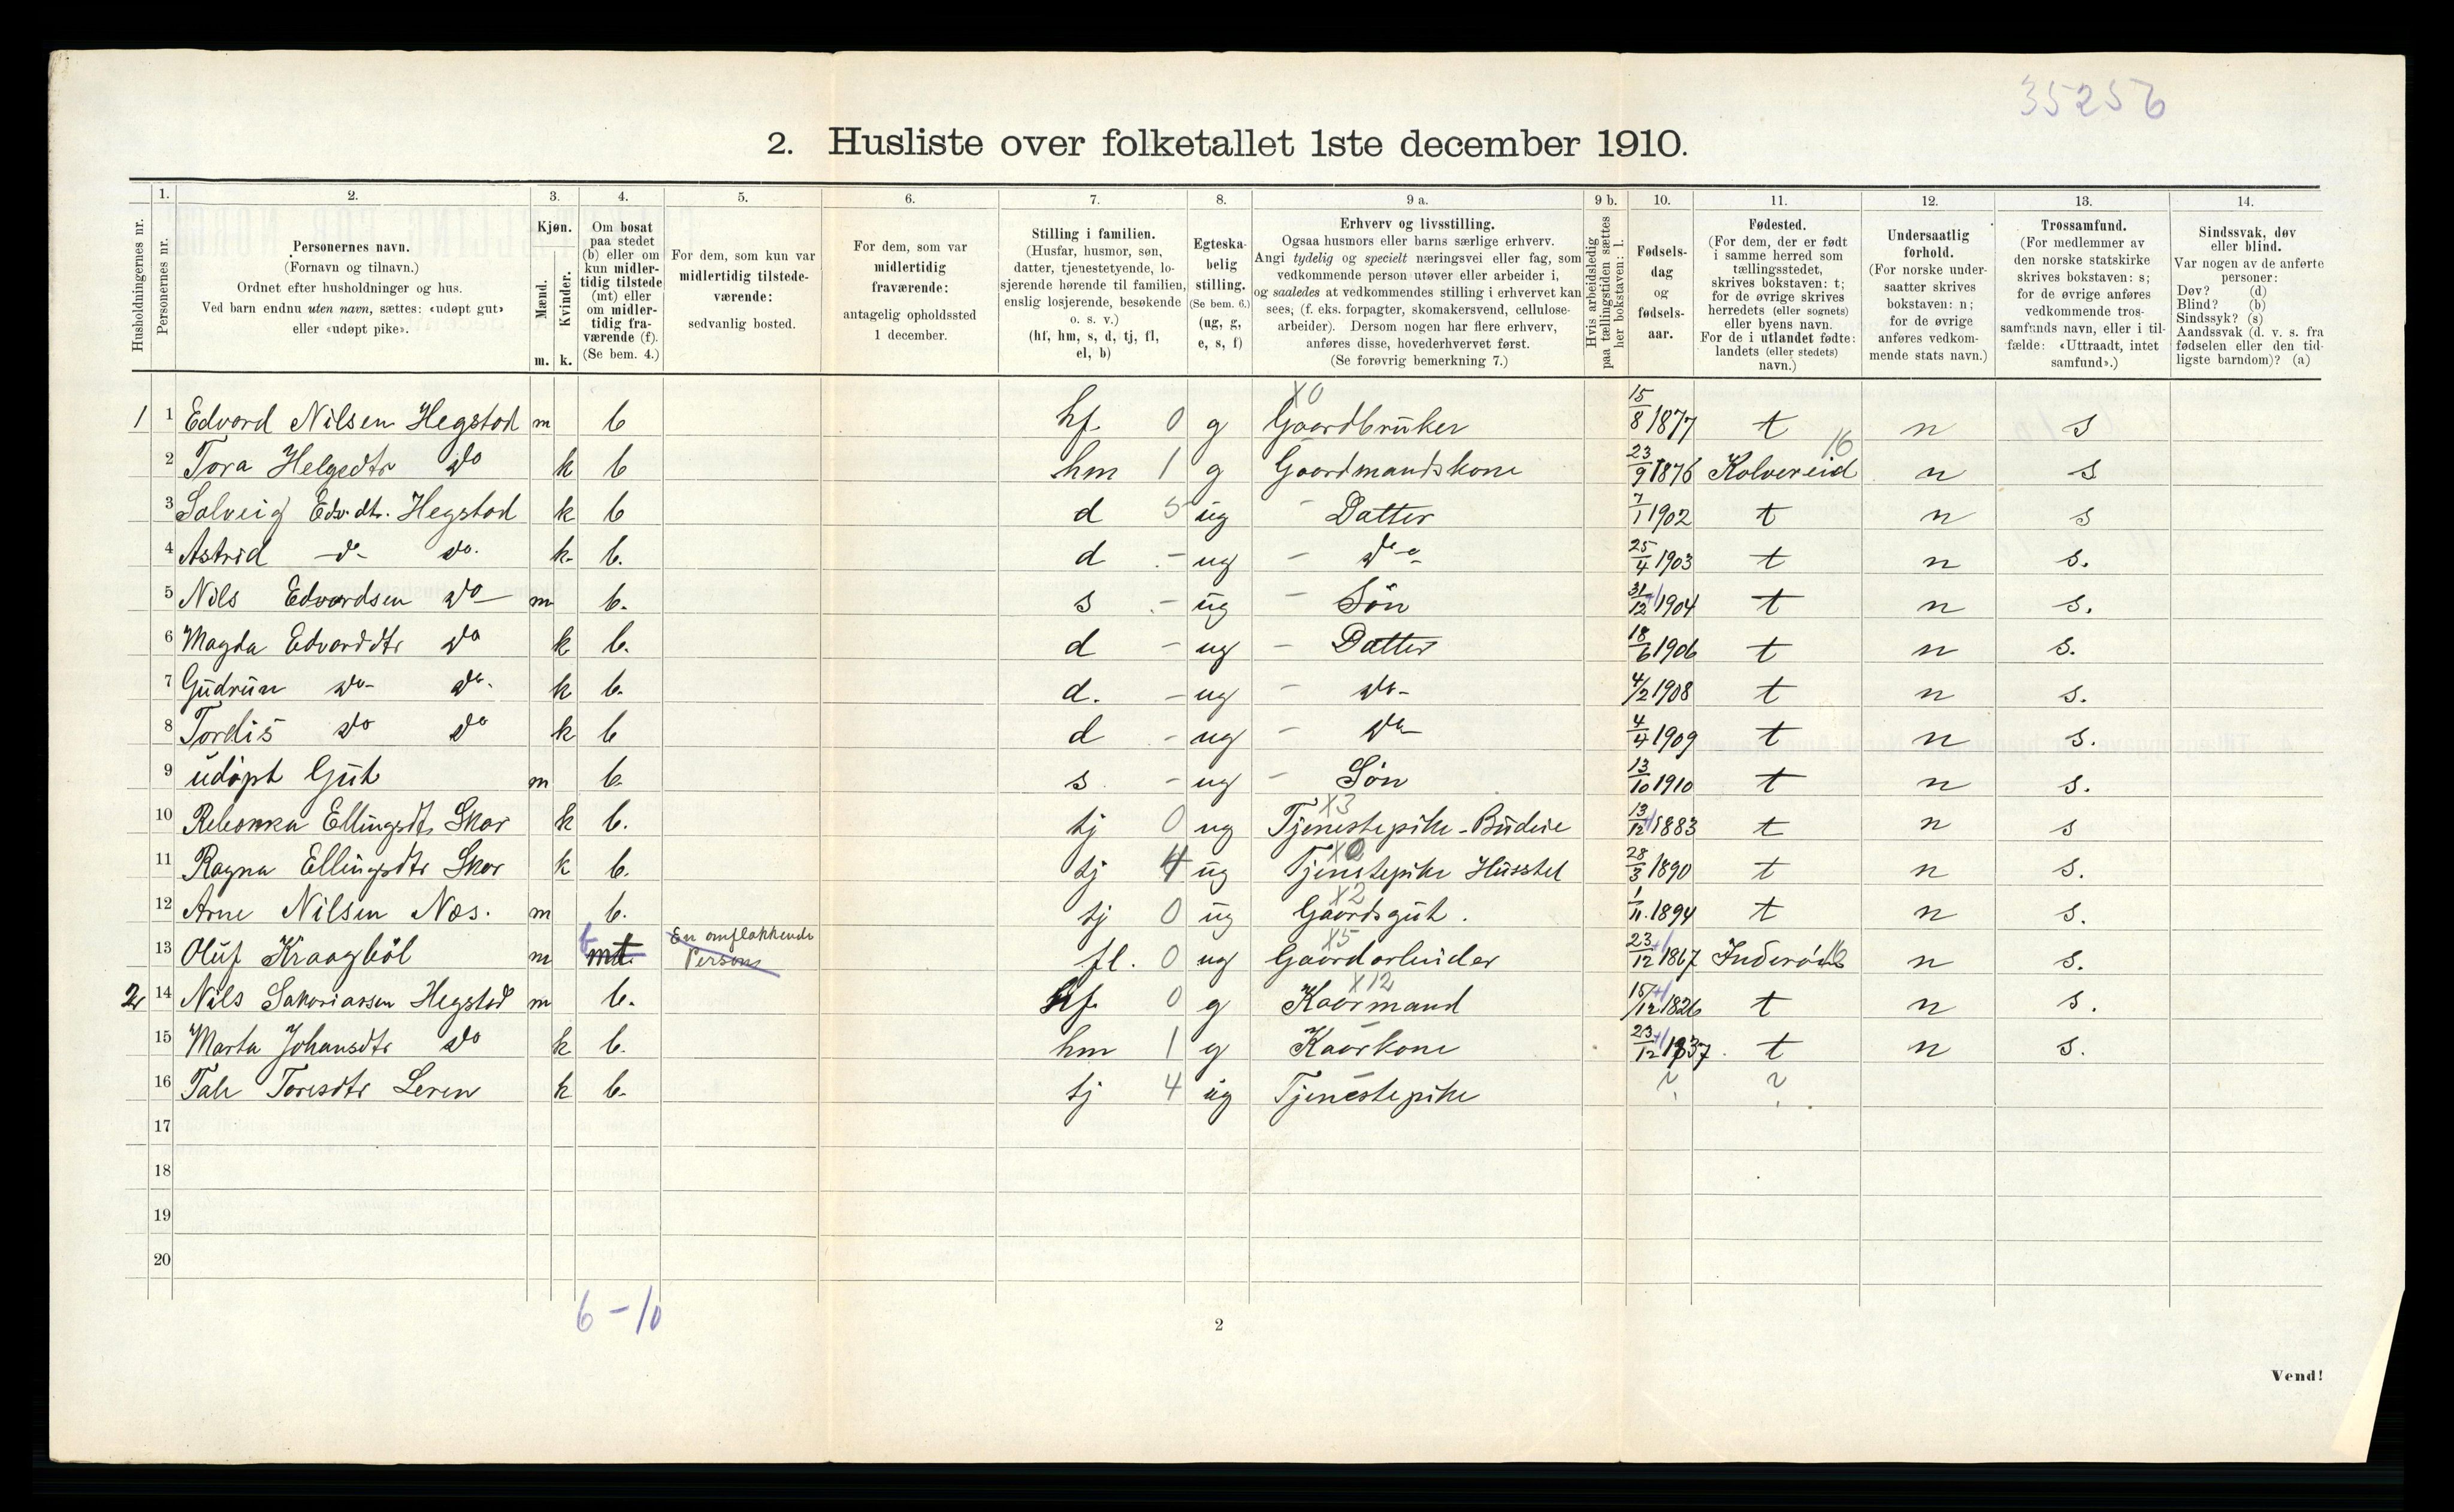 35256
2. Husliste over folketallet 1ste december 1910.
Husholdningernes nr.
1. Personernes nr.
2. Personernes navn. (Fornavn og tilnavn.) Ordnet efter husholdninger og hus. Ved barn endnu uten navn, sættes: «udøpt gut» eller «udøpt pike».
3. Kjøn. Mænd. m. Kvinder. k.
4. Om bosat paa stedet (b) eller om kun midlertidig tilstede (mt) eller om midlertidig fraværende (f). (Se bem. 4.)
5. For dem, som kun var midlertidig tilstedeværende: sedvanlig bosted.
6. For dem, som var midlertidig fraværende: antagelig opholdssted 1 december.
7. Stilling i familien. (Husfar, husmor, søn, datter, tjenestetyende, losjerende hørende til familien, enslig losjerende, besøkende o. s. v.) (hf, hm, s, d, tj, fl, el, b)
8. Egteskabelig stilling. (Se bem. 6.) (ug, g, e, s, f)
9 a. Erhverv og livsstilling. Ogsaa husmors eller barns særlige erhverv. Angi tydelig og specielt næringsvei eller fag, som vedkommende person utøver eller arbeider i, og saaledes at vedkommendes stilling i erhvervet kan sees; (f. eks. forpagter, skomakersvend, cellulosearbeider). Dersom nogen har flere erhverv, anføres disse, hovederhvervet først. (Se forøvrig bemerkning 7.)
9 b. Hvis arbeidsledig paa tællingstiden sættes her bokstaven: l.
10. Fødselsdag og fødselsaar.
11. Fødested. (For dem, der er født i samme herred som tællingsstedet, skrives bokstaven: t; for de øvrige skrives herredets (eller sognets) eller byens navn. For de i utlandet fødte: landets (eller stedets) navn.)
12. Undersaatlig forhold. (For norske undersaatter skrives bokstaven: n; for de øvrige anføres vedkommende stats navn.)
13. Trossamfund. (For medlemmer av den norske statskirke skrives bokstaven: s; for de øvrige anføres vedkommende trossamfunds navn, eller i tilfælde: «Uttraadt, intet samfund».)
14. Sindssvak, døv eller blind. Var nogen av de anførte personer: Døv? (d) Blind? (b) Sindssyk? (s) Aandssvak (d. v. s. fra fødselen eller den tidligste barndom)? (a)
1 1 Edvard Nilsen Hegstad m b hf. 0 g X0 Gaardbruker 15/8 1877 t n s
2 Tora Helgedtr do k b hm 1 g Gaardmandskone 23/9 1876 Kolvereid 16 n s
3 Solveig Edv.dtr. Hegstad k b d 5 ug - Datter 7/1 1902 t n s
4 Astrid -d- do. k b. d - ug - do 25/4 1903 t n s.
5 Nils Edvardsen do m b. s - ug - Søn 31/12 1904 t n s.
6 Magda Edvarddtr do k b. d - ug - Datter 18/6 1906 t n s.
7 Gudrun do- do. k b. d. - ug - do- 4/2 1908 t n s.
8 Tordis do do k b d - ug - do 4/4 1909 t n s.
9 udøpt Gut m b. s - ug - Søn 13/10 1910 t n s.
10 Rebekka Ellingsdtr Skar k b. tj 0 ug X3 Tjenestepike - Budeie 13/12 1883 t n s
11 Ragna Ellingsdtr Skar k b. tj 4 ug Tjenestepike Husstel 28/3 1890 t n s.
12 Arne Nilsen Næs. m b. tj 0 ug X2 Gaardsgut. 1/11. 1894 t n s.
13 Oluf Kraagbøl m b mt. En omflakkende Person fl. 0 ug X5 Gaardarbeider 23/12 1867 Inderøen 16 n s.
2 14 Nils Sakariassen Hegstad m b. hf. 0 g X12 Kaarmand 15/12 1826 t n s.
15 Marta Johansdtr do k b. hm 1 g Kaarkone 23/12 1837. t n s.
16 Tale Toresdtr Leren k b. tj 4 ug Tjenestepike ? ?
17
18
19
20
6 - 10
2
Vend!